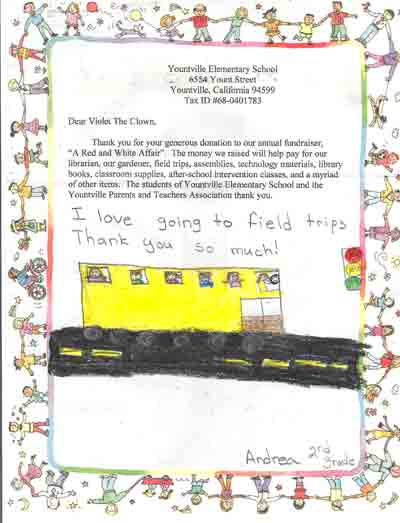 Yountville Elementary School
6554 Yount Street
Yountville, California 94599
Tax ID #68-0401783
Dear Violet The Clown,
Thank you for your generous donation to our annual fundraiser,
"A Red and White Affair". The money we raised will help pay for our
librarian, our gardener, field trips, assemblies, technology materials, library
books, classroom supplies, after-school intervention classes, and a myriad
of other items. The students of Yountville Elementary School and the
Yountville Parents and Teachers Association thank you.
I love going to field trips
Thank you so much!
Andrea 2nd
grade